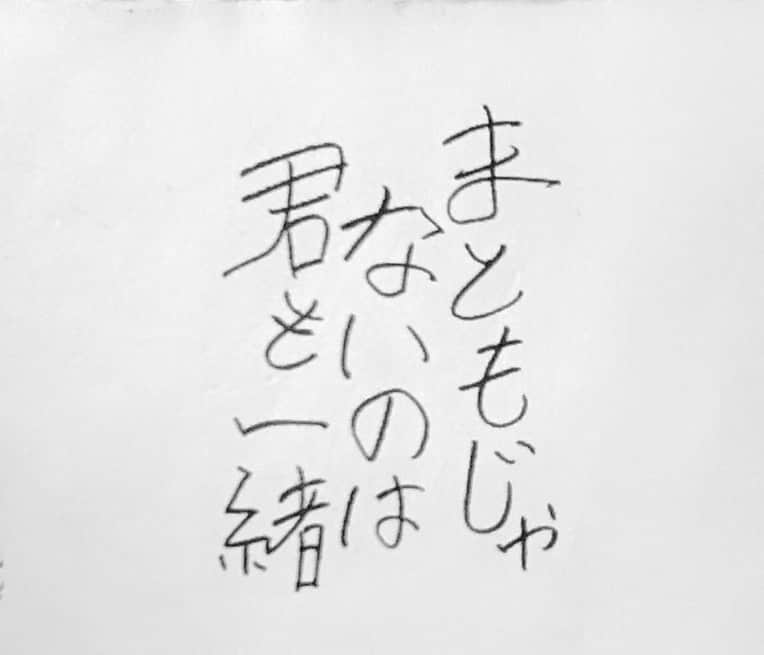 まともじゃ
ないのは
君と一緒